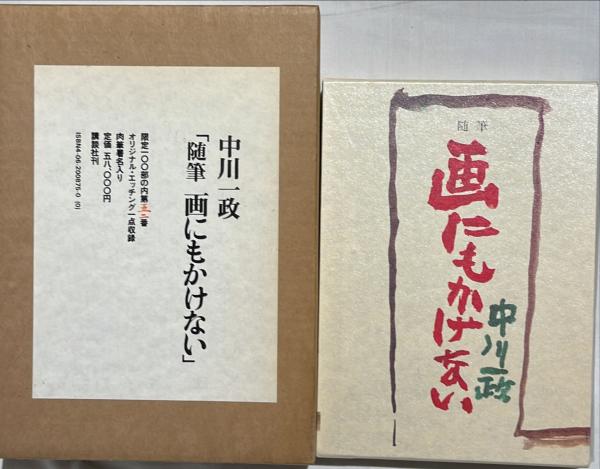 中川一政
「随筆 画にもかけない」
限定一〇〇部の内第 番
オリジナル・エッチング一点収録
肉筆署名入り
定価 五八、〇〇〇円
講談社刊
ISBN4-06-200875-0 (0)
随筆
画にもかけない
中川一政